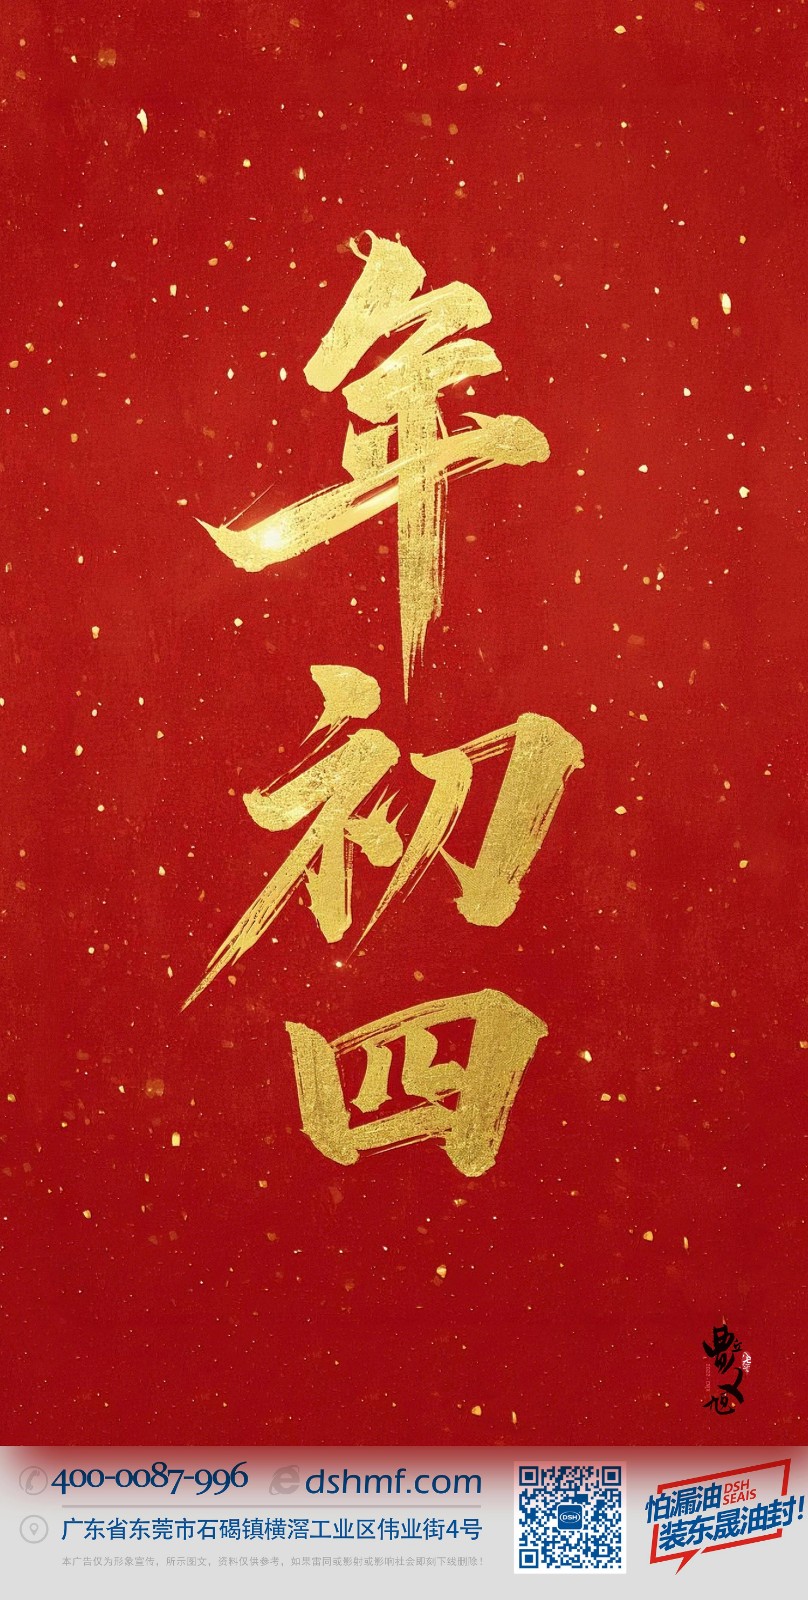 年
初
四
400-0087-996
dshmf.com
广东省东莞市石碣镇横滘工业区伟业街4号
本广告仅为形象宣传，所示图文，资料仅供参考，如果雷同或影射或影响社会即刻下线删除！
DSH
怕漏油 DSH SEAlS
装东晟油封!